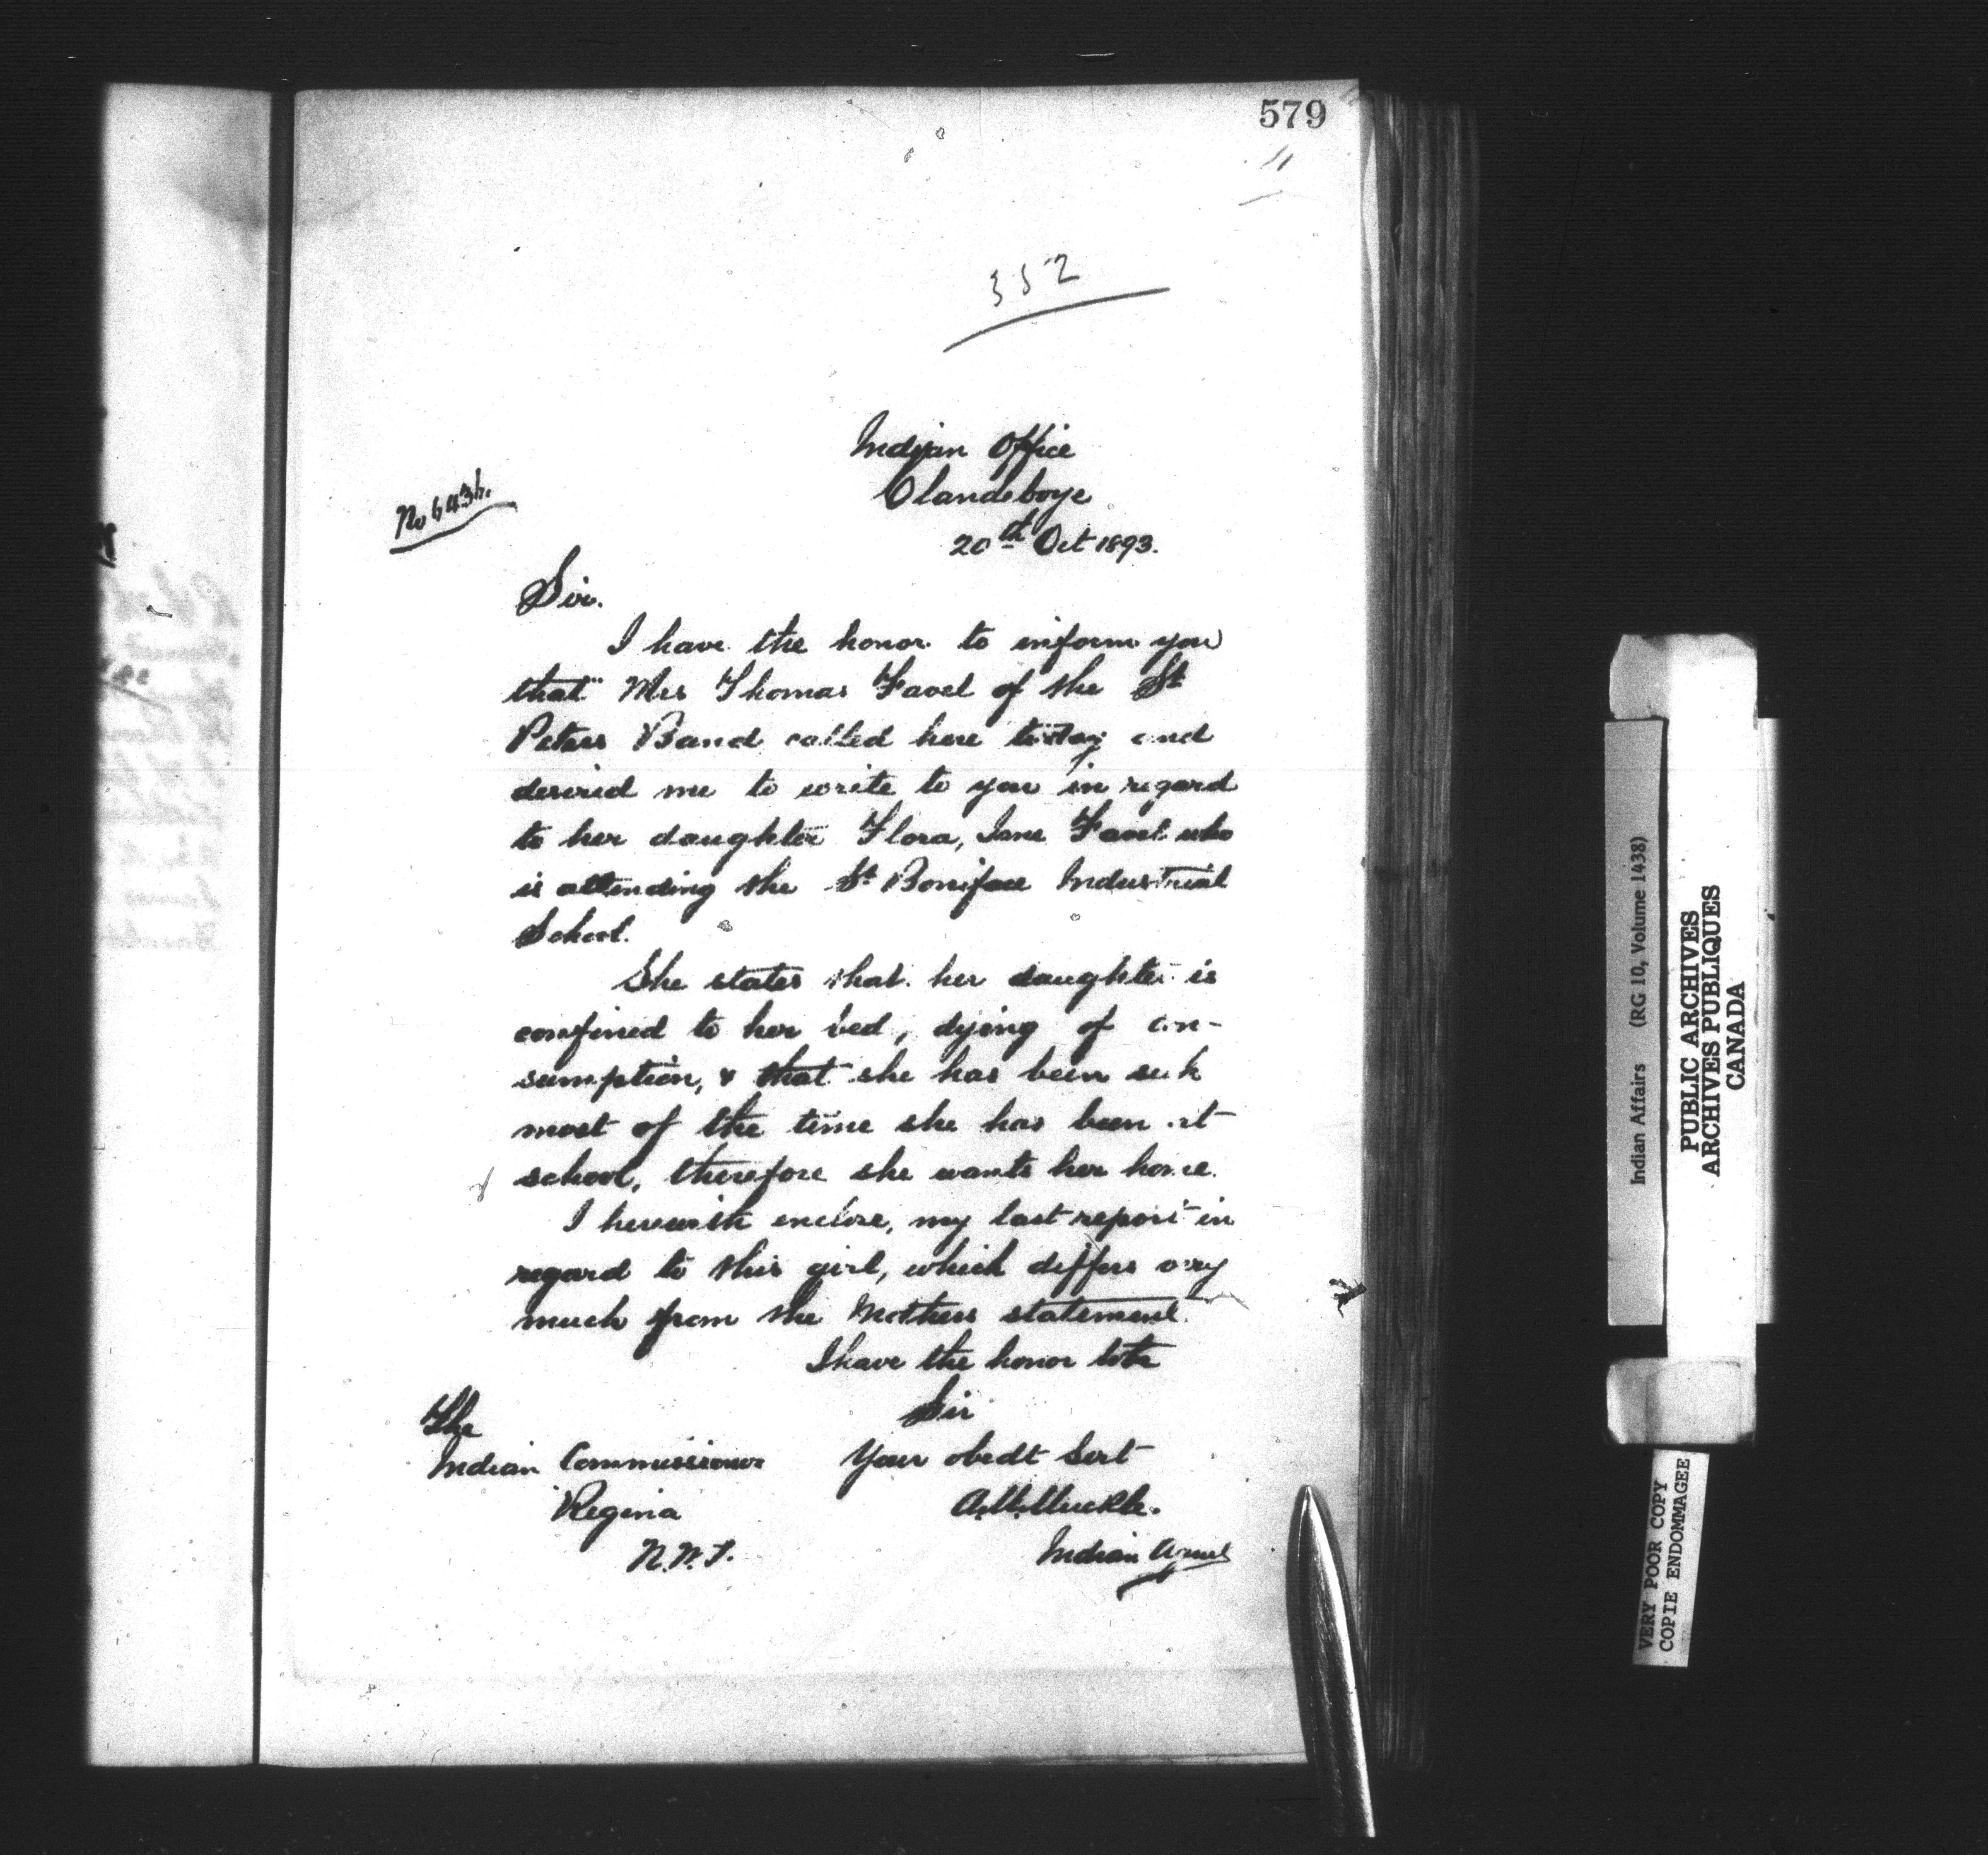 579
11
352
Indian Office
Clandeboye
20th Oct 1893.
Sir.
I have the honor to inform you
that Mrs Thomas Favel of the St
Peters Band called here today and
desired me to write to you in regard
to her daughter Flora, Jane Favel who
is attending the St Boniface Industrial
School.
She states that her daughter is
confined to her bed, dying of con-
sumption, & that she has been sick
most of the time she has been at
school, therefore she wants her home.
I herewith enclose, my last report in
regard to this girl, which differs very
much from the Mothers statement.
I have the honor to be
Sir
Your obedt Servt
A.M. Muckle.
Indian Agent
The
Indian Commissioner
Regina
N.W.T.
Indian Affairs (RG 10, Volume 1438)
PUBLIC ARCHIVES
ARCHIVES PUBLIQUES
CANADA
VERY POOR COPY
COPIE ENDOMMAGEE